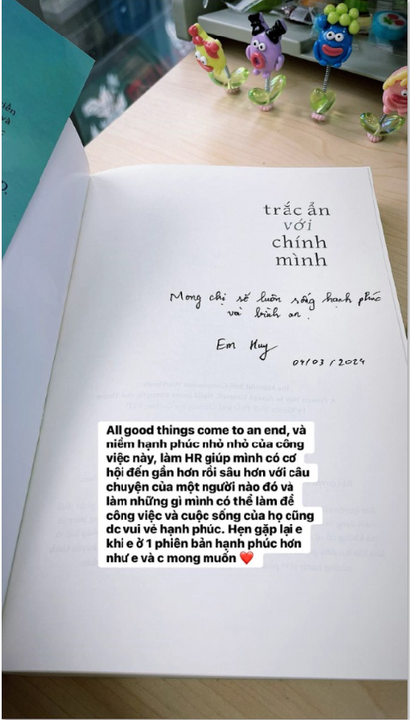 trắc ẩn
với
chính
mình
Mong chị sẽ luôn sống hạnh phúc
và bình an.
Em Huy
04/03/2024
All good things come to an end, và
niềm hạnh phúc nhỏ nhỏ của công
việc này, làm HR giúp mình có cơ
hội đến gần hơn rồi sâu hơn với câu
chuyện của một người nào đó và
làm những gì mình có thể làm để
công việc và cuộc sống của họ cũng
dc vui vẻ hạnh phúc. Hẹn gặp lại e
khi e ở 1 phiên bản hạnh phúc hơn
như e và c mong muốn ❤️